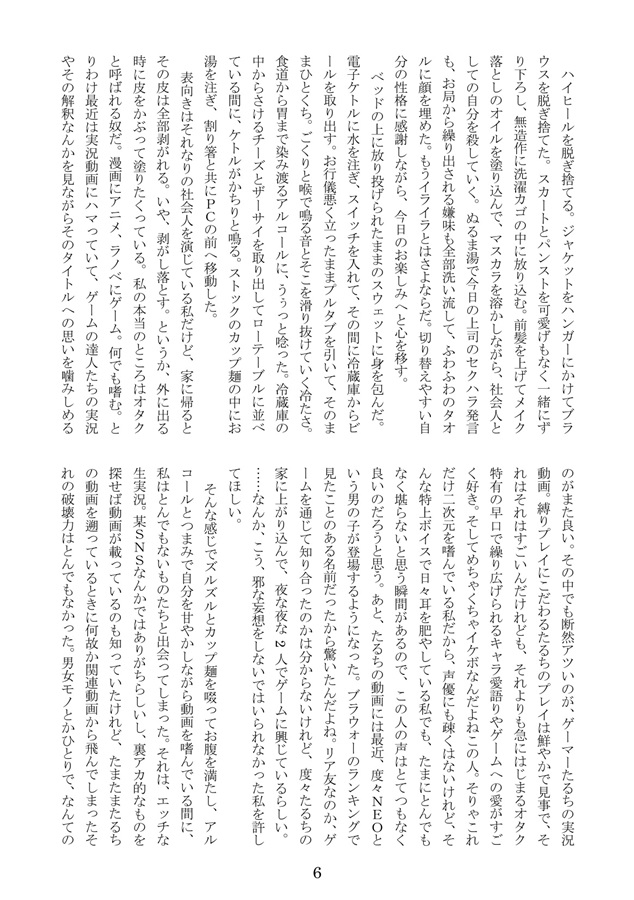 ハイヒールを脱ぎ捨てる。ジャケットをハンガーにかけてブラ
ウスを脱ぎ捨てた。スカートとパンストを可愛げもなく一緒にず
り下ろし、無造作に洗濯カゴの中に放り込む。前髪を上げてメイク
落としのオイルを塗り込んで、マスカラを溶かしながら、社会人と
しての自分を殺していく。ぬるま湯で今日の上司のセクハラ発言
も、お局から繰り出される嫌味も全部洗い流して、ふわふわのタオ
ルに顔を埋めた。もうイライラとはさよならだ。切り替えやすい自
分の性格に感謝しながら、今日のお楽しみへと心を移す。
　ベッドの上に放り投げられたままのスウェットに身を包んだ。
電子ケトルに水を注ぎ、スイッチを入れて、その間に冷蔵庫からビ
ールを取り出す。お行儀悪く立ったままプルタブを引いて、そのま
まひとくち。ごくりと喉で鳴る音とそこを滑り抜けていく冷たさ。
食道から胃まで染み渡るアルコールに、うぅっと唸った。冷蔵庫の
中からさけるチーズとザーサイを取り出してローテーブルに並べ
ている間に、ケトルがかちりと鳴る。ストックのカップ麺の中にお
湯を注ぎ、割り箸と共にPCの前へ移動した。
　表向きはそれなりの社会人を演じている私だけど、家に帰ると
その皮は全部剥がれる。いや、剥がし落とす。というか、外に出る
時に皮をかぶって塗りたくっている。私の本当のところはオタク
と呼ばれる奴だ。漫画にアニメ、ラノベにゲーム。何でも嗜む。と
りわけ最近は実況動画にハマっていて、ゲームの達人たちの実況
やその解釈なんかを見ながらそのタイトルへの思いを噛みしめる
のがまた良い。その中でも断然アツいのが、ゲーマーたるちの実況
動画。縛りプレイにこだわるたるちのプレイは鮮やかで見事で、そ
れはそれはすごいんだけれども、それよりも急にはじまるオタク
特有の早口で繰り広げられるキャラ愛語りやゲームへの愛がすご
く好き。そしてめちゃくちゃイケボなんだよねこの人。そりゃこれ
だけ二次元を嗜んでいる私だから、声優にも疎くはないけれど、そ
んな特上ボイスで日々耳を肥やしている私でも、たまにとんでも
なく堪らないと思う瞬間があるので、この人の声はとてつもなく
良いのだろうと思う。あと、たるちの動画には最近、度々NEOと
いう男の子が登場するようになった。ブラウォーのランキングで
見たことのある名前だったから驚いたんだよね。リア友なのか、ゲ
ームを通じて知り合ったのかは分からないけれど、度々たるちの
家に上がり込んで、夜な夜な2人でゲームに興じているらしい。
……なんか、こう、邪な妄想をしないではいられなかった私を許し
てほしい。
　そんな感じでズルズルとカップ麺を啜ってお腹を満たし、アル
コールとつまみで自分を甘やかしながら動画を嗜んでいる間に、
私はとんでもないものたちと出会ってしまった。それは、エッチな
生実況。某SNSなんかではありがちらしいし、裏アカ的なものを
探せば動画が載っているのも知っていたけれど、たまたまたるち
の動画を遡っているときに何故か関連動画から飛んでしまったそ
れの破壊力はとんでもなかった。男女モノとかひとりで、なんての
6